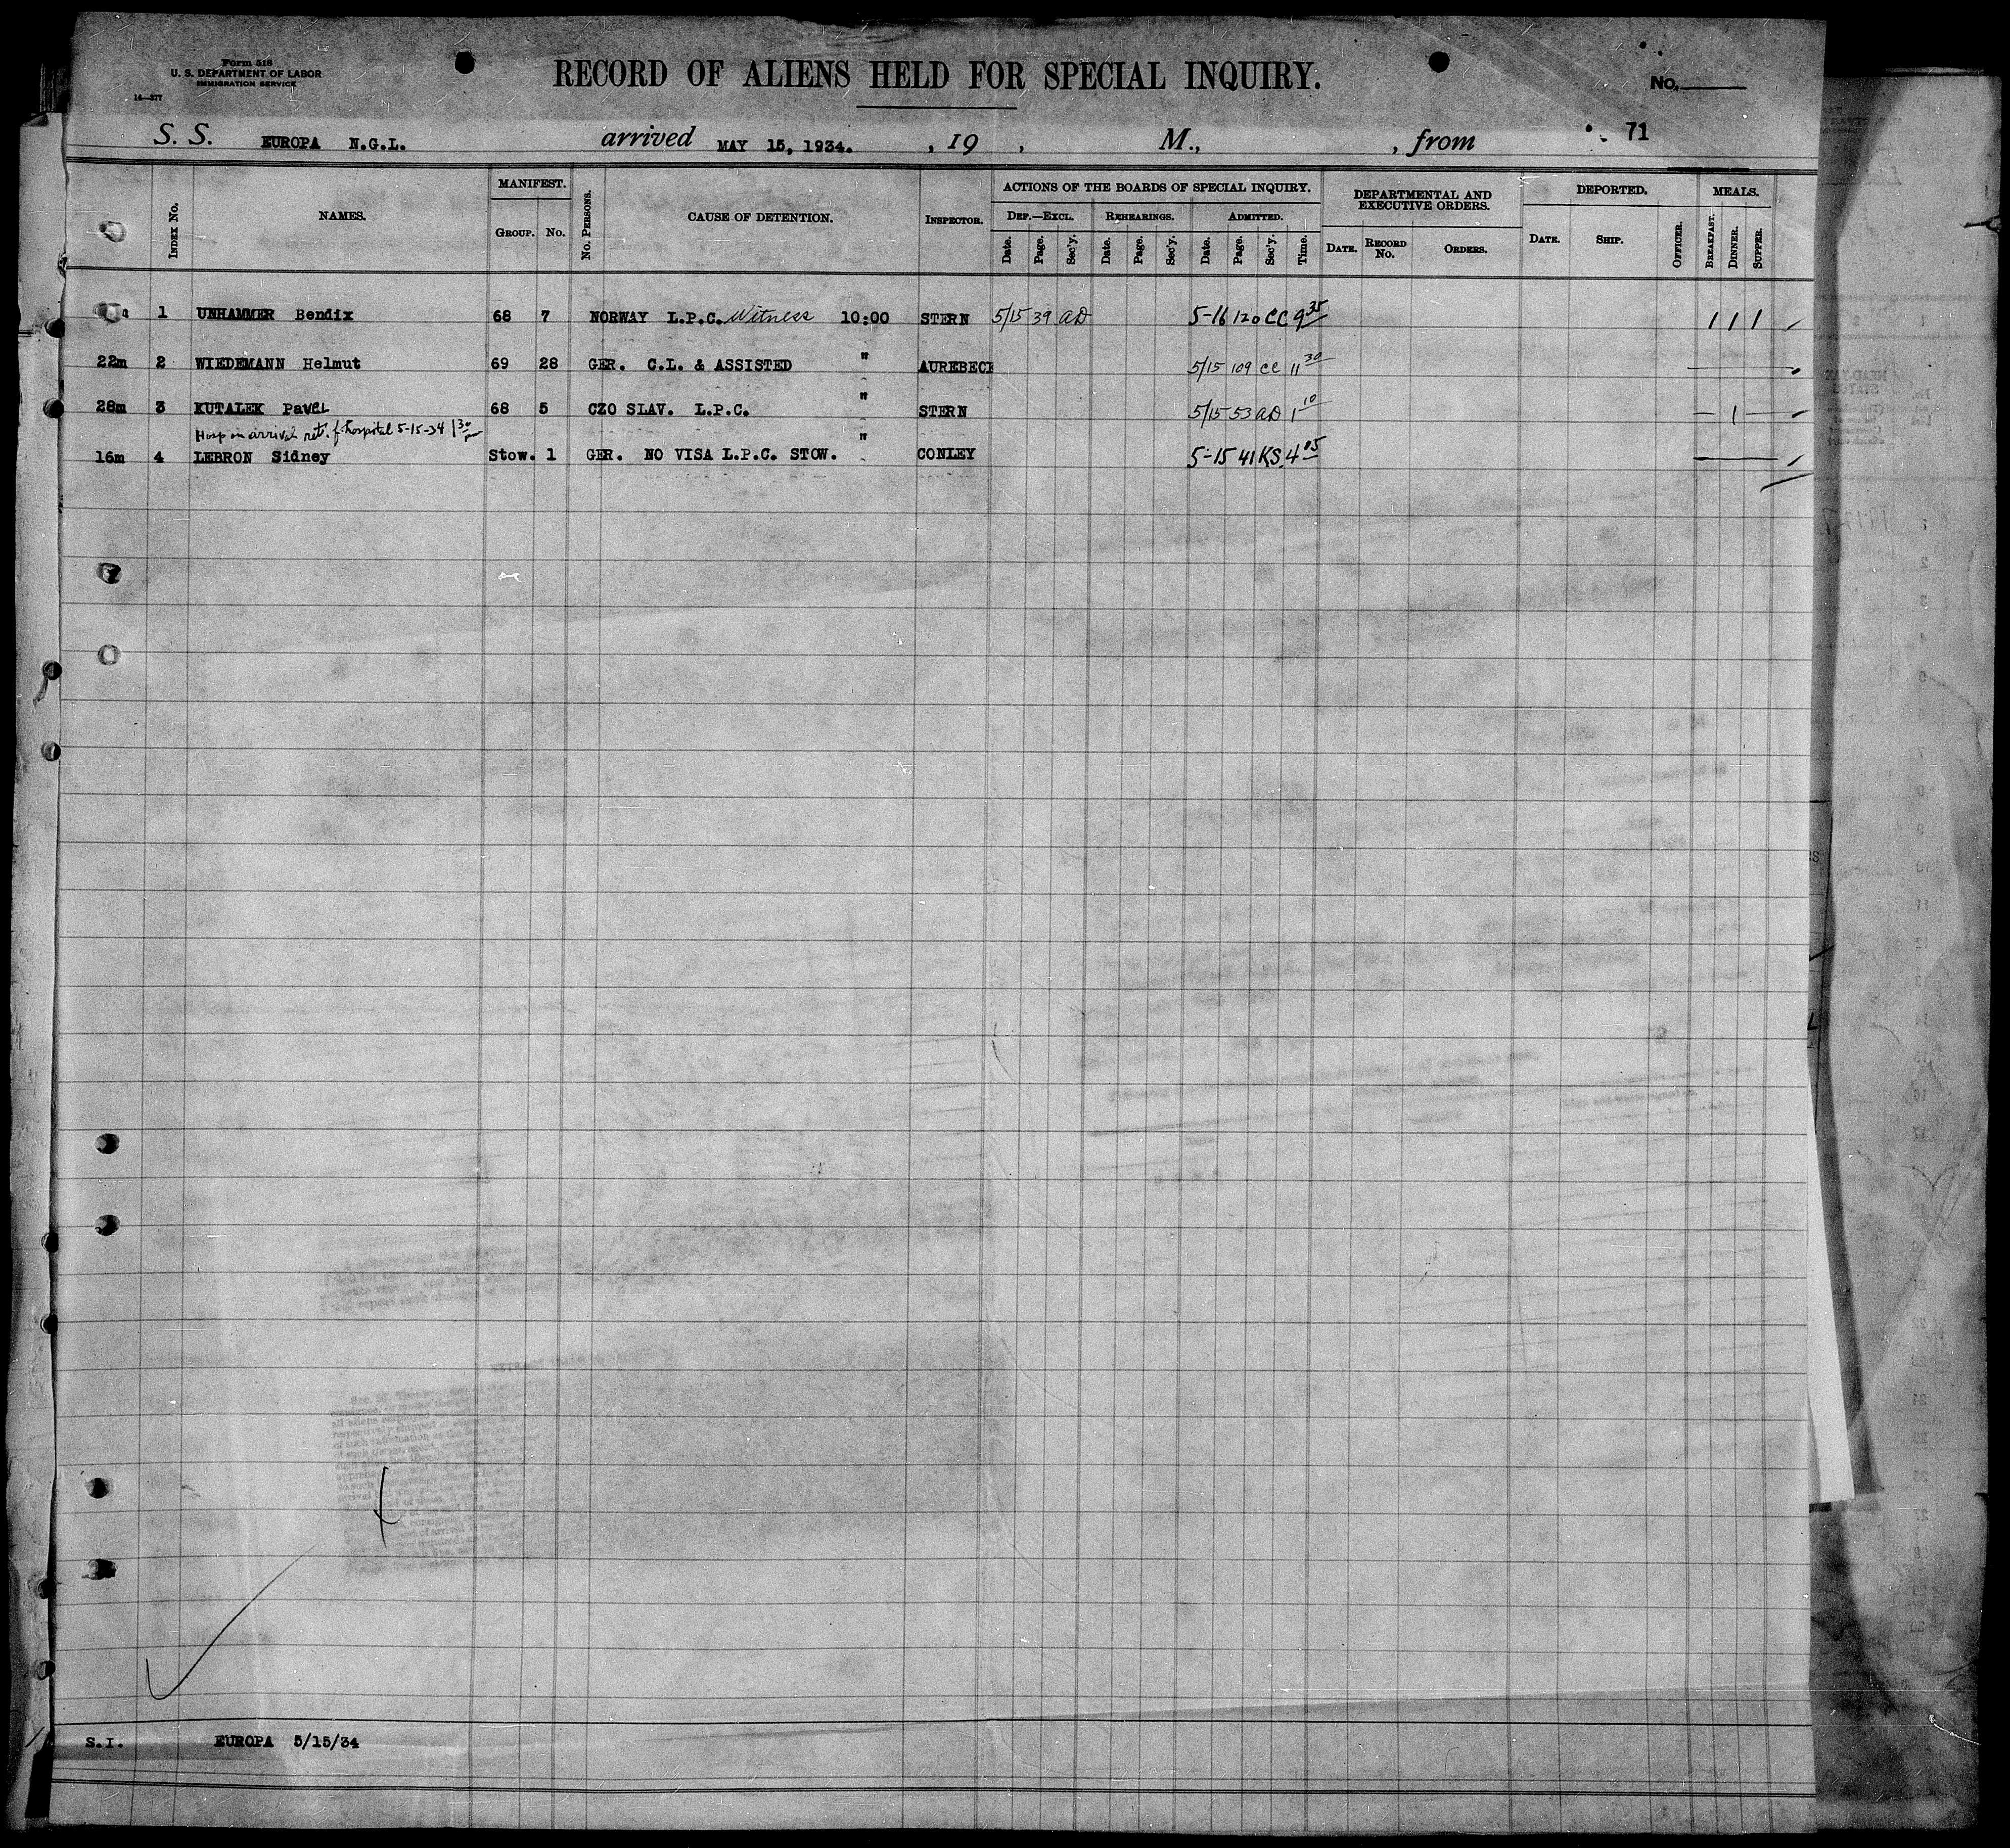 Form 518
U. S. DEPARTMENT OF LABOR
IMMIGRATION SERVICE
14—377
RECORD OF ALIENS HELD FOR SPECIAL INQUIRY.
No.
S. S. EUROPA N.G.L. arrived MAY 15, 1934. , 19 , M., , from 71
INDEX No. NAMES. MANIFEST. GROUP. No. No. PERSONS. CAUSE OF DETENTION. INSPECTOR. ACTIONS OF THE BOARDS OF SPECIAL INQUIRY. DEPARTMENTAL AND EXECUTIVE ORDERS. DEPORTED. MEALS.
DEF.—EXCL. REHEARINGS. ADMITTED.
Date. Page. Sec'y. Date. Page. Sec'y. Date. Page. Sec'y. Time. DATE. RECORD No. ORDERS. DATE. SHIP. OFFICER. BREAKFAST. DINNER. SUPPER.
1 UNHAMMER Bendix 68 7 NORWAY L.P.C. Witness 10:00 STERN 5/15 39 AD 5-16 120 CC 9 35 1 1 1
22m 2 WIEDEMANN Helmut 69 28 GER. C.L. & ASSISTED " AUREBECK 5/15 109 CC 11 30
28m 3 KUTALEK Pavel 68 5 CZO SLAV. L.P.C. " STERN 5/15 53 AD 1 10 — 1 —
Hosp on arrival ret. f. hospital 5-15-34 1 30
16m 4 LEBRON Sidney Stow. 1 GER. NO VISA L.P.C. STOW. " CONLEY 5-15 41 KS. 4 05
S.I. EUROPA 5/15/34